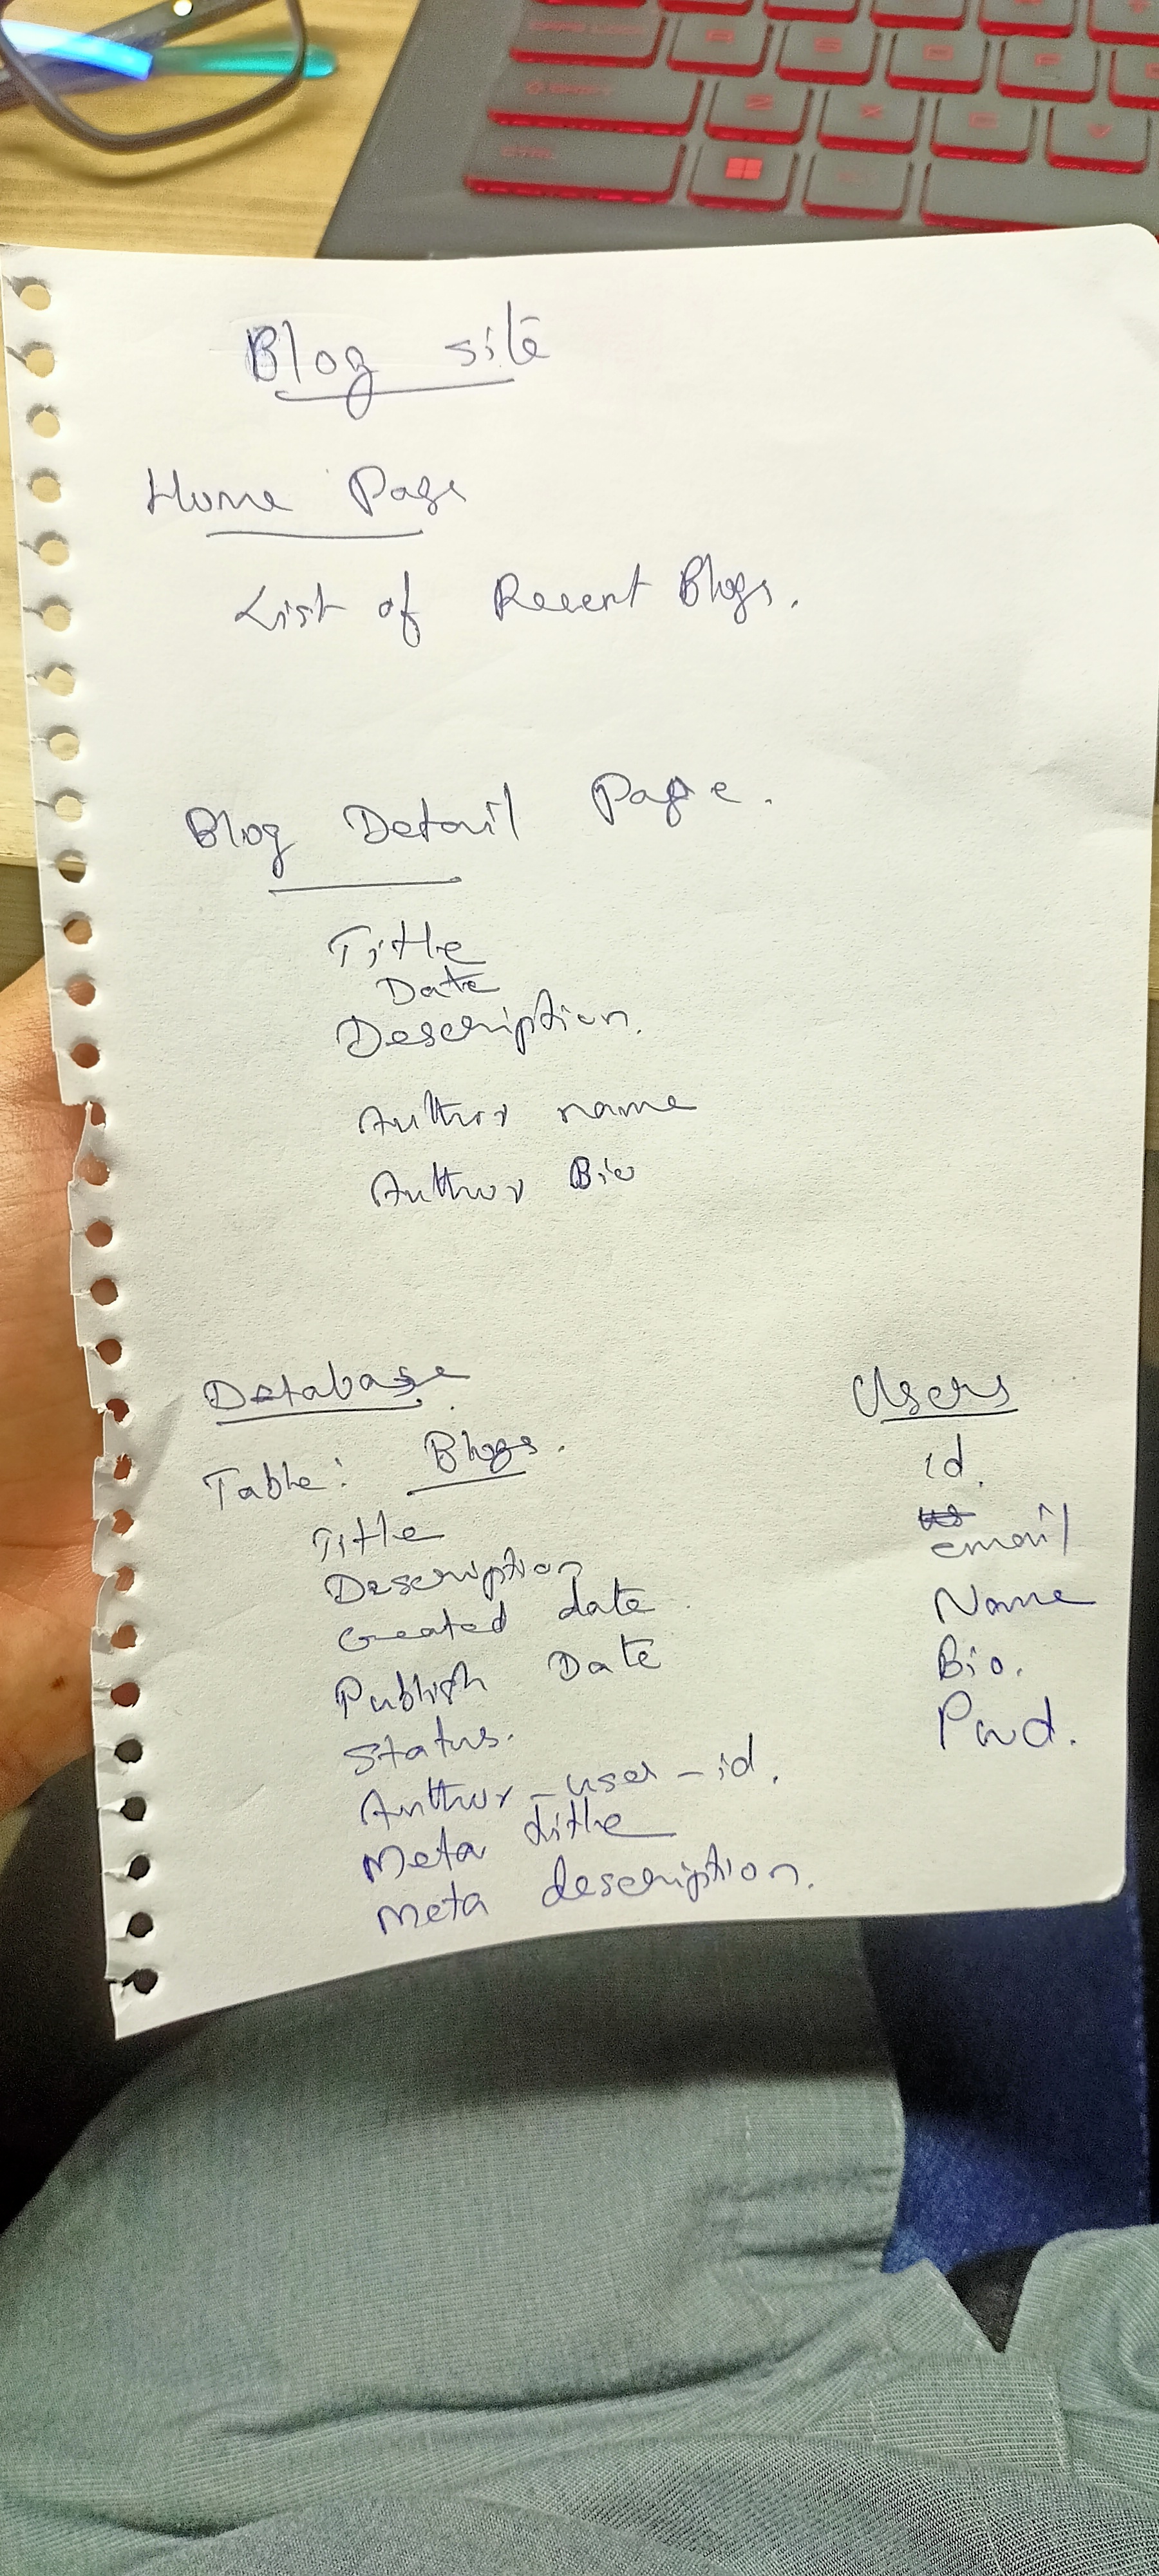 Blog site
Home Page
List of Recent Blogs.
Blog Detail Page.
Title
Date
Description.
Author name
Author Bio
Database
Table: Blogs.
Title
Description
Created date
Publish Date
Status.
Author_user_id.
Meta title
Meta description.
Users
id.
email
Name
Bio.
Pwd.